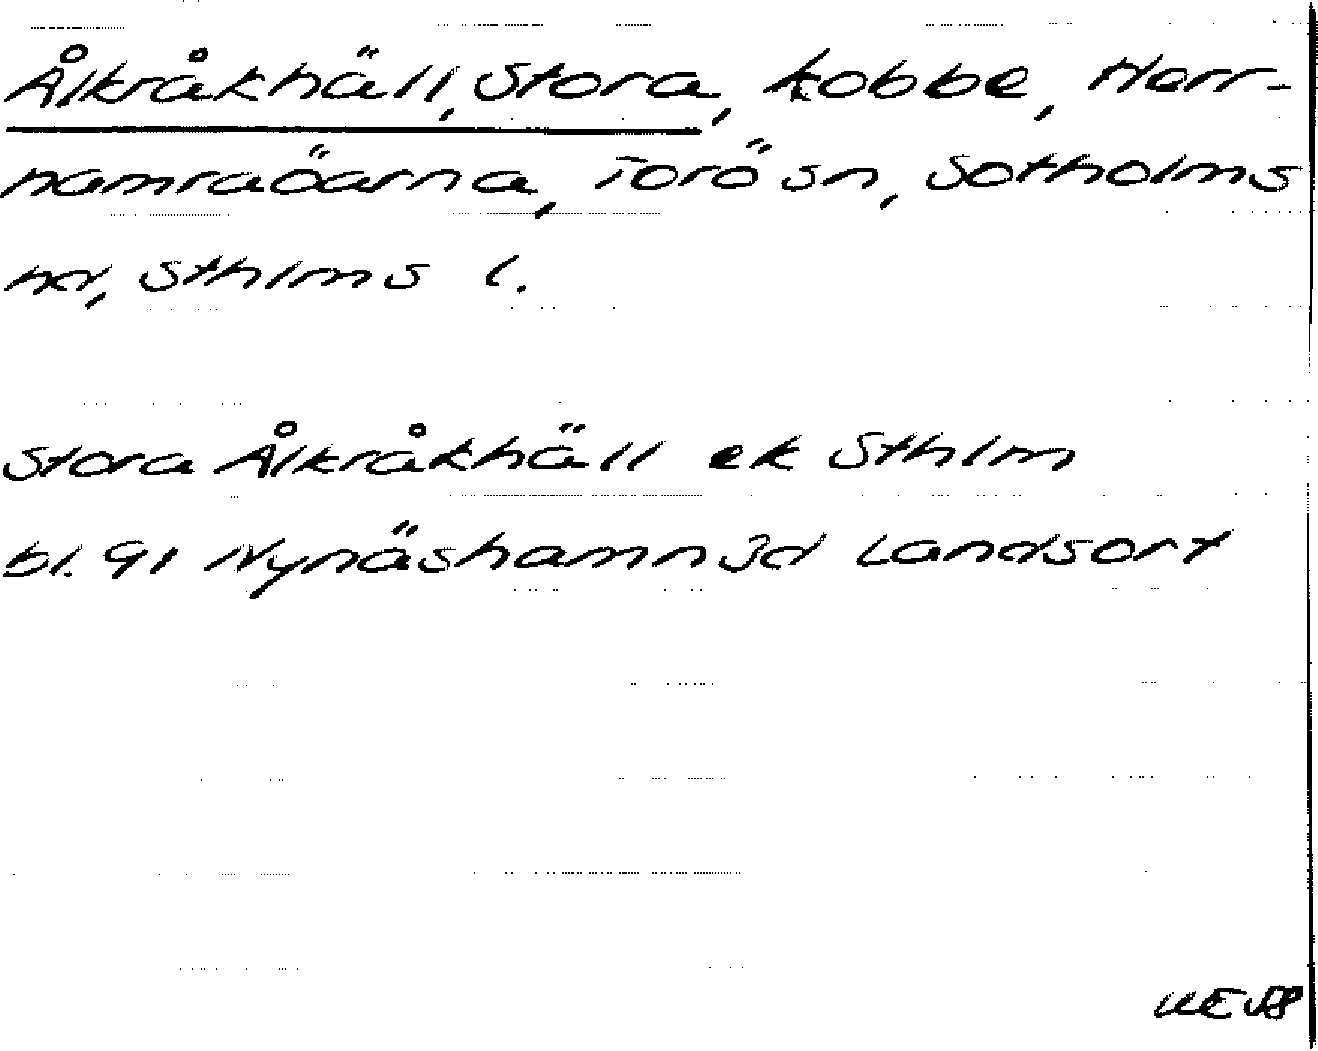 Ålkråkhäll, Stora, kobbe, Herr-
hamraöarna, Torö sn, Sotholms
hd, Sthlms l.
Stora Ålkråkhäll ek Sthlm
bl. 91 Nynäshamn 3d Landsort